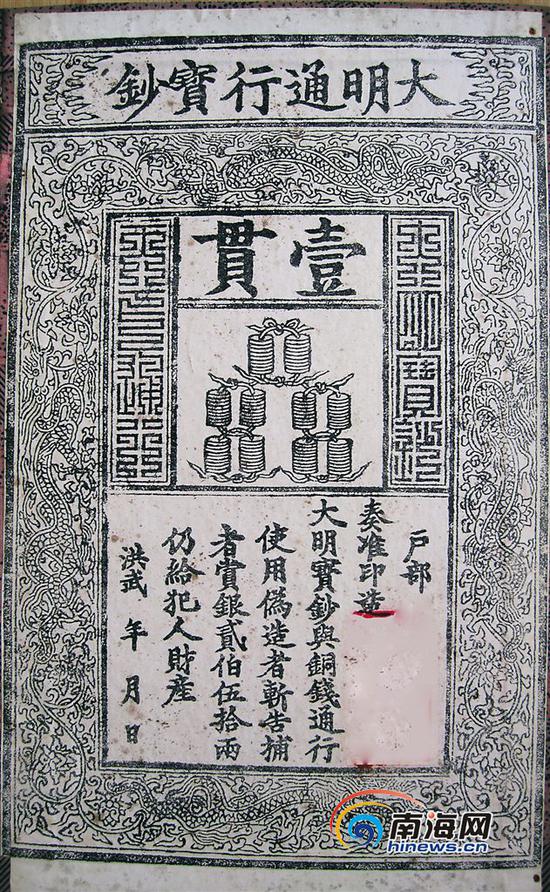 大明通行寶鈔
壹貫
大明寶鈔
天下通行
户部
奏准印造
大明寶鈔與銅錢通行
使用僞造者斬告捕
者賞銀貳伯伍拾兩
仍給犯人財産
洪武 年 月 日
南海网
hinews.cn